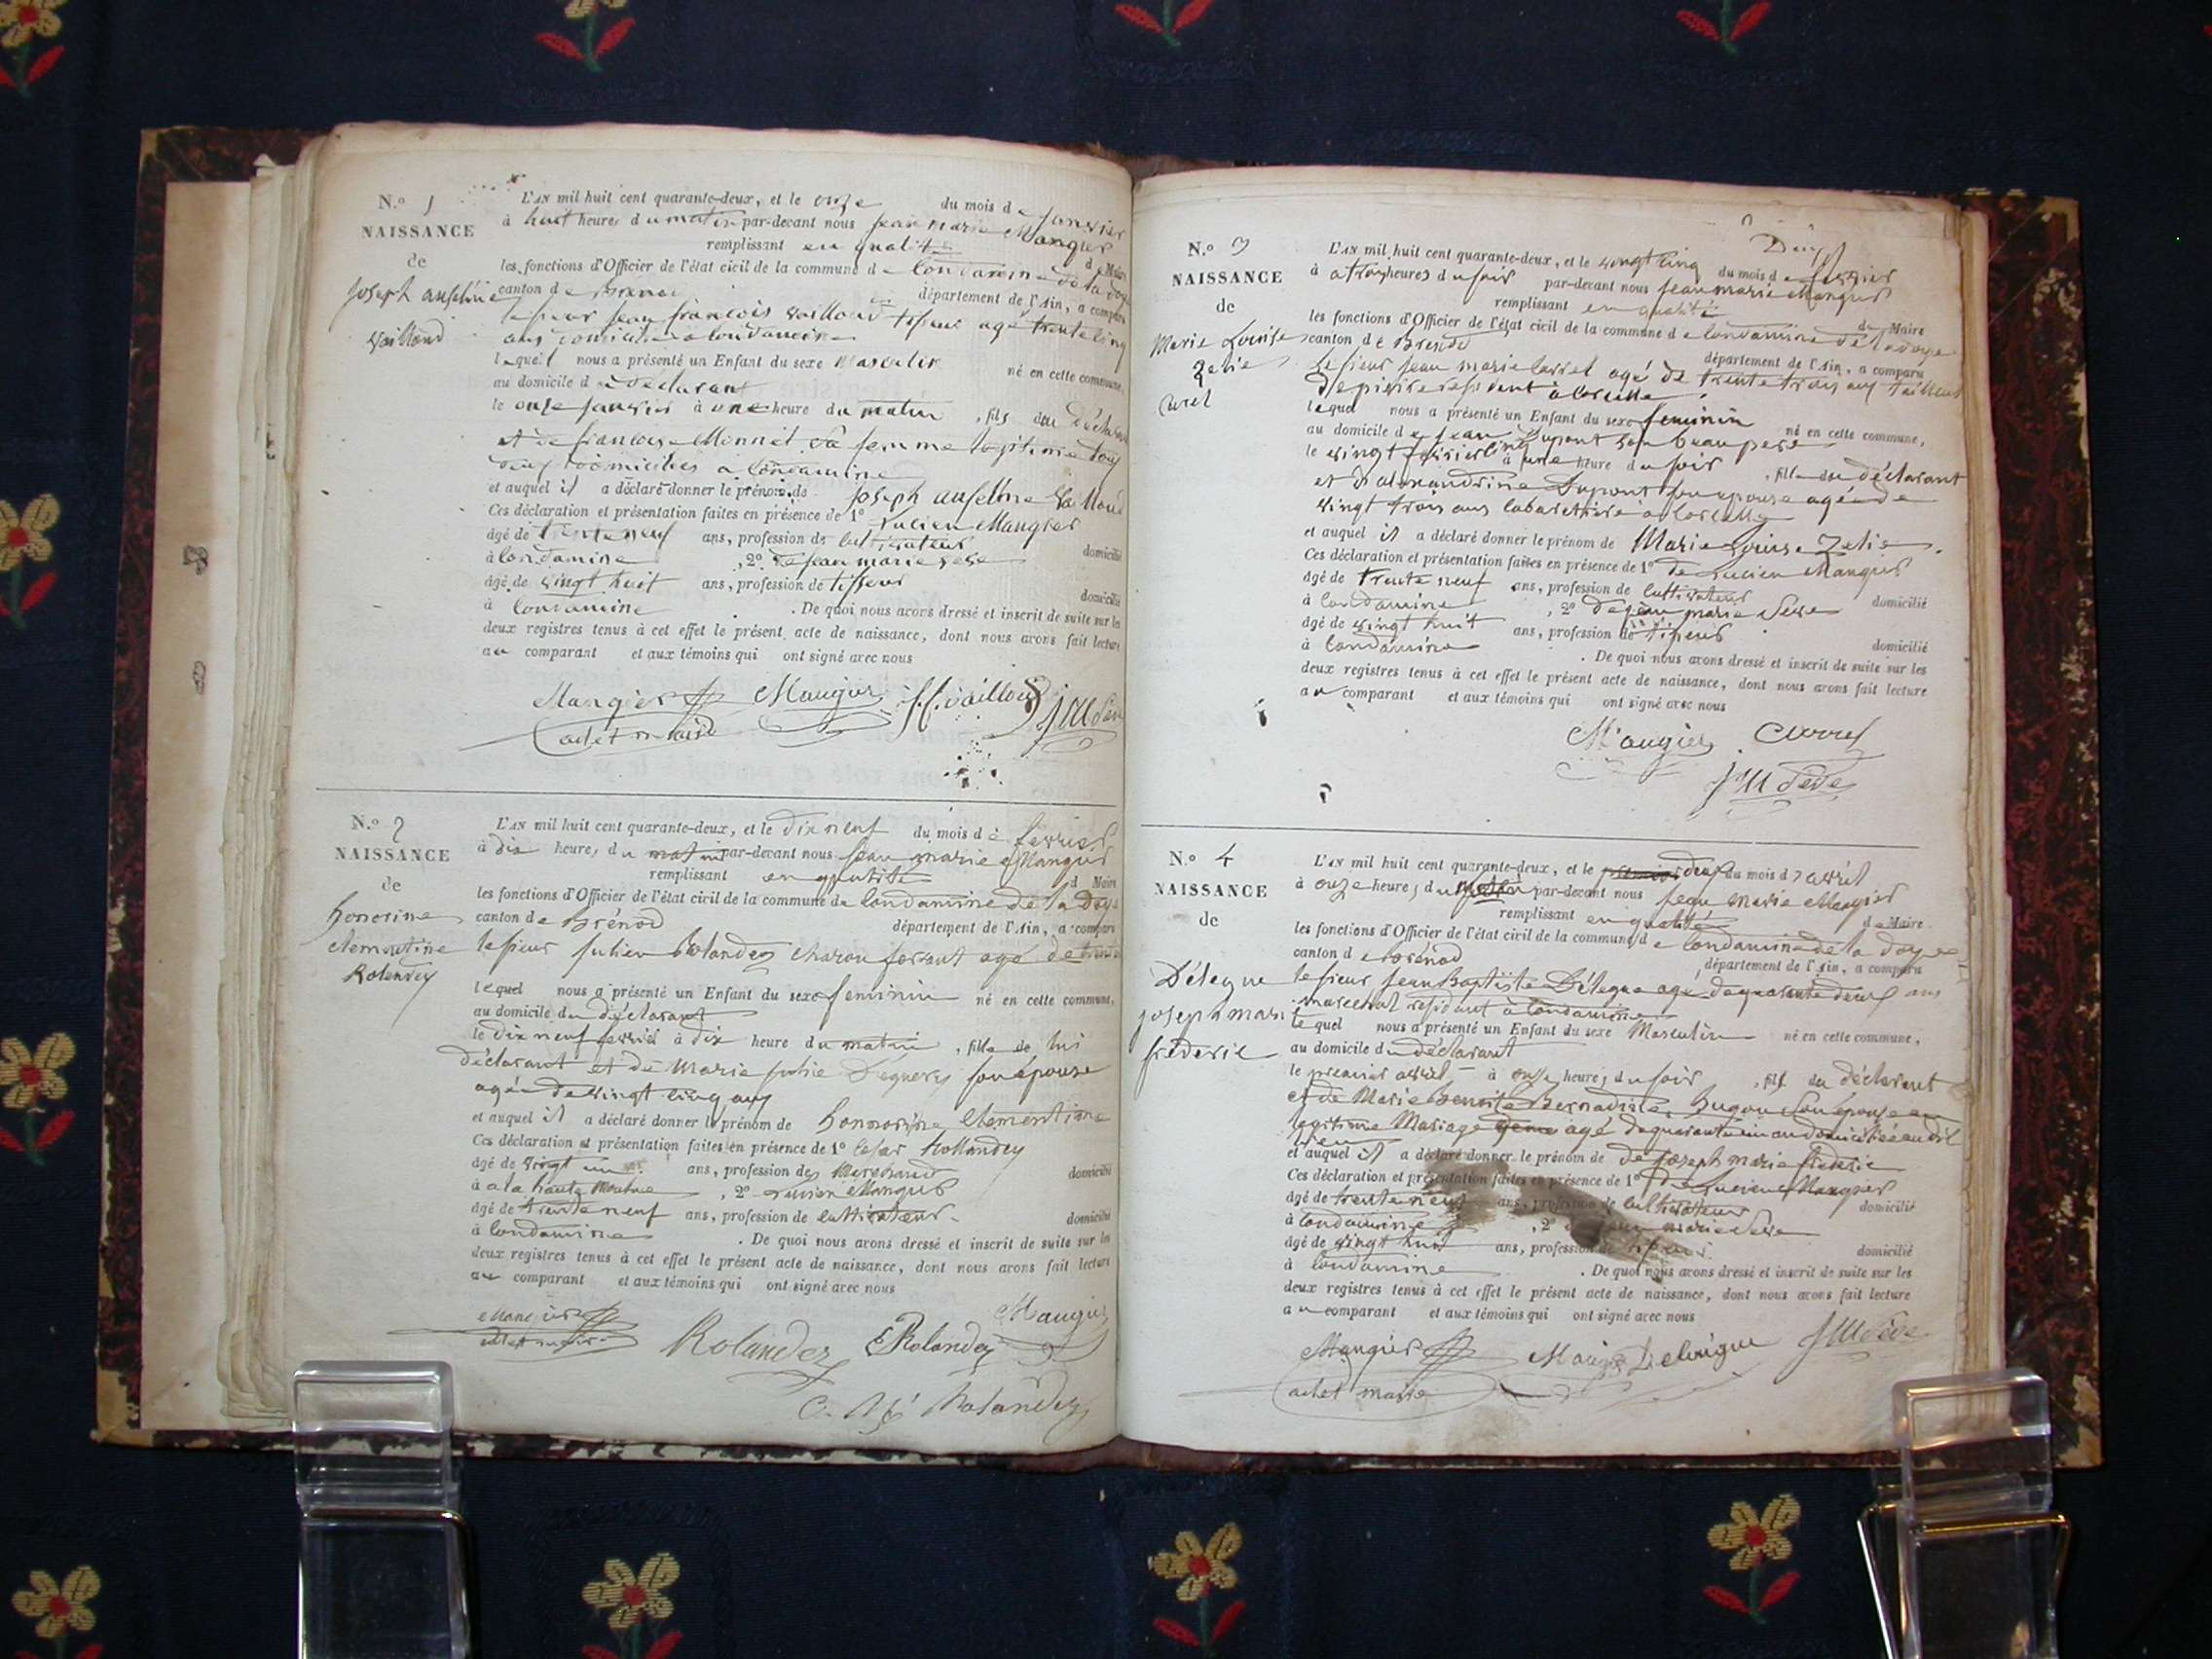 N.o 1
NAISSANCE
de
joseph anselme
vailloud
L'AN mil huit cent quarante-deux, et le onze du mois de janvier
à huit heures du matin par-devant nous jean marie Mangier
remplissant en qualité de Maire
les fonctions d'Officier de l'état civil de la commune de Condamine de la doye
canton de Brenod département de l'Ain, a comparu
le sieur jean françois vailloud tisseur agé trente cinq
ans domicilié a Condamine
lequel nous a présenté un Enfant du sexe Masculin né en cette commune,
au domicile du déclarant
le onze janvier à une heure du matin, fils du déclarant
et de françoise Monnet sa femme légitime tous
deux domiciliés a Condamine
et auquel il a déclaré donner le prénom de joseph anselme vailloud
Ces déclaration et présentation faites en présence de 1o Lucien Mangier
âgé de trente neuf ans, profession de cultivateur domicilié
à Condamine, 2o de jean marie seve
âgé de vingt huit ans, profession de tisseur domicilié
à Condamine. De quoi nous avons dressé et inscrit de suite sur les
deux registres tenus à cet effet le présent acte de naissance, dont nous avons fait lecture
au comparant et aux témoins qui ont signé avec nous
Mangier Maugier J. f. vailloud JM Seve
adet maire
N.o 2
NAISSANCE
de
honorine
clementine
Rolandez
L'AN mil huit cent quarante-deux, et le dix neuf du mois de fevrier
à dix heures du matin par-devant nous jean marie Mangier
remplissant en qualité de Maire
les fonctions d'Officier de l'état civil de la commune de Condamine de la Doye
canton de Brénod département de l'Ain, a comparu
le sieur julien Rolandez charon ferrant agé de trente
lequel nous a présenté un Enfant du sexe feminin né en cette commune,
au domicile du déclarant
le dix neuf fevrier à dix heure du matin, fille de lui
déclarant et de Marie julie son épouse
agée de vingt cinq ans
et auquel il a déclaré donner le prénom de honnorine Clementine
Ces déclaration et présentation faites en présence de 1o Cesar Rollandez
âgé de vingt un ans, profession de Marchand domicilié
à a la haute Moulue, 2o Lucien Mangier
âgé de trente neuf ans, profession de cultivateur domicilié
à Condamine. De quoi nous avons dressé et inscrit de suite sur les
deux registres tenus à cet effet le présent acte de naissance, dont nous avons fait lecture
au comparant et aux témoins qui ont signé avec nous
Mangier Rolandez Rolandez Maugier
adet maire
Rolandez
Deux
N.o 3
NAISSANCE
de
Marie Louise
Zelie
Curel
L'AN mil huit cent quarante-deux, et le vingt cinq du mois de fevrier
à a trois heures du soir par-devant nous jean marie Mangier
remplissant en qualité de Maire
les fonctions d'Officier de l'état civil de la commune de Condamine de la doye
canton de Brenod département de l'Ain, a comparu
le sieur jean marie Carrel agé de trente trois ans tailleur
de pierre residant à Corcelle
lequel nous a présenté un Enfant du sexe feminin né en cette commune,
au domicile de jean Dupont son beau pere
le vingt cinq fevrier à une heure du soir, fille du déclarant
et d'alexandrine Dupont son épouse agée de
vingt trois ans cabaretiere a Corcelle
et auquel il a déclaré donner le prénom de Marie Louise Zelie.
Ces déclaration et présentation faites en présence de 1o de Lucien Mangier
âgé de trente neuf ans, profession de cultivateur domicilié
à Condamine, 2o de jean marie Seve
âgé de vingt huit ans, profession de tisseur domicilié
à Condamine. De quoi nous avons dressé et inscrit de suite sur les
deux registres tenus à cet effet le présent acte de naissance, dont nous avons fait lecture
au comparant et aux témoins qui ont signé avec nous
Maugier Carrel
JM Seve
N.o 4
NAISSANCE
de
Délegue
joseph mari
fréderic
L'AN mil huit cent quarante-deux, et le premier deux du mois d'avril
à onze heures du par-devant nous jean Marie Mangier
remplissant en qualité de Maire
les fonctions d'Officier de l'état civil de la commune de Condamine de la doye
canton de Brénod département de l'Ain, a comparu
le sieur jean Baptiste Délegue agé de quarante deux ans
marechal residant a Condamine
lequel nous a présenté un Enfant du sexe Masculin né en cette commune,
au domicile du déclarant
le premier avril à onze heures du soir, fils du déclarant
et de Marie Benoite Bernadine Hugon son épouse en
legitime Mariage agé de quarante un an domiciliée au dit
lieu
et auquel il a déclaré donner le prénom de de joseph marie frederic
Ces déclaration et présentation faites en présence de 1o de Lucien Mangier
âgé de trente neuf ans, profession de cultivateur domicilié
à Condamine, 2o de jean marie Seve
âgé de vingt huit ans, profession de tisseur domicilié
à Condamine. De quoi nous avons dressé et inscrit de suite sur les
deux registres tenus à cet effet le présent acte de naissance, dont nous avons fait lecture
au comparant et aux témoins qui ont signé avec nous
Mangier Maugier Delaigue JM Seve
adet maire